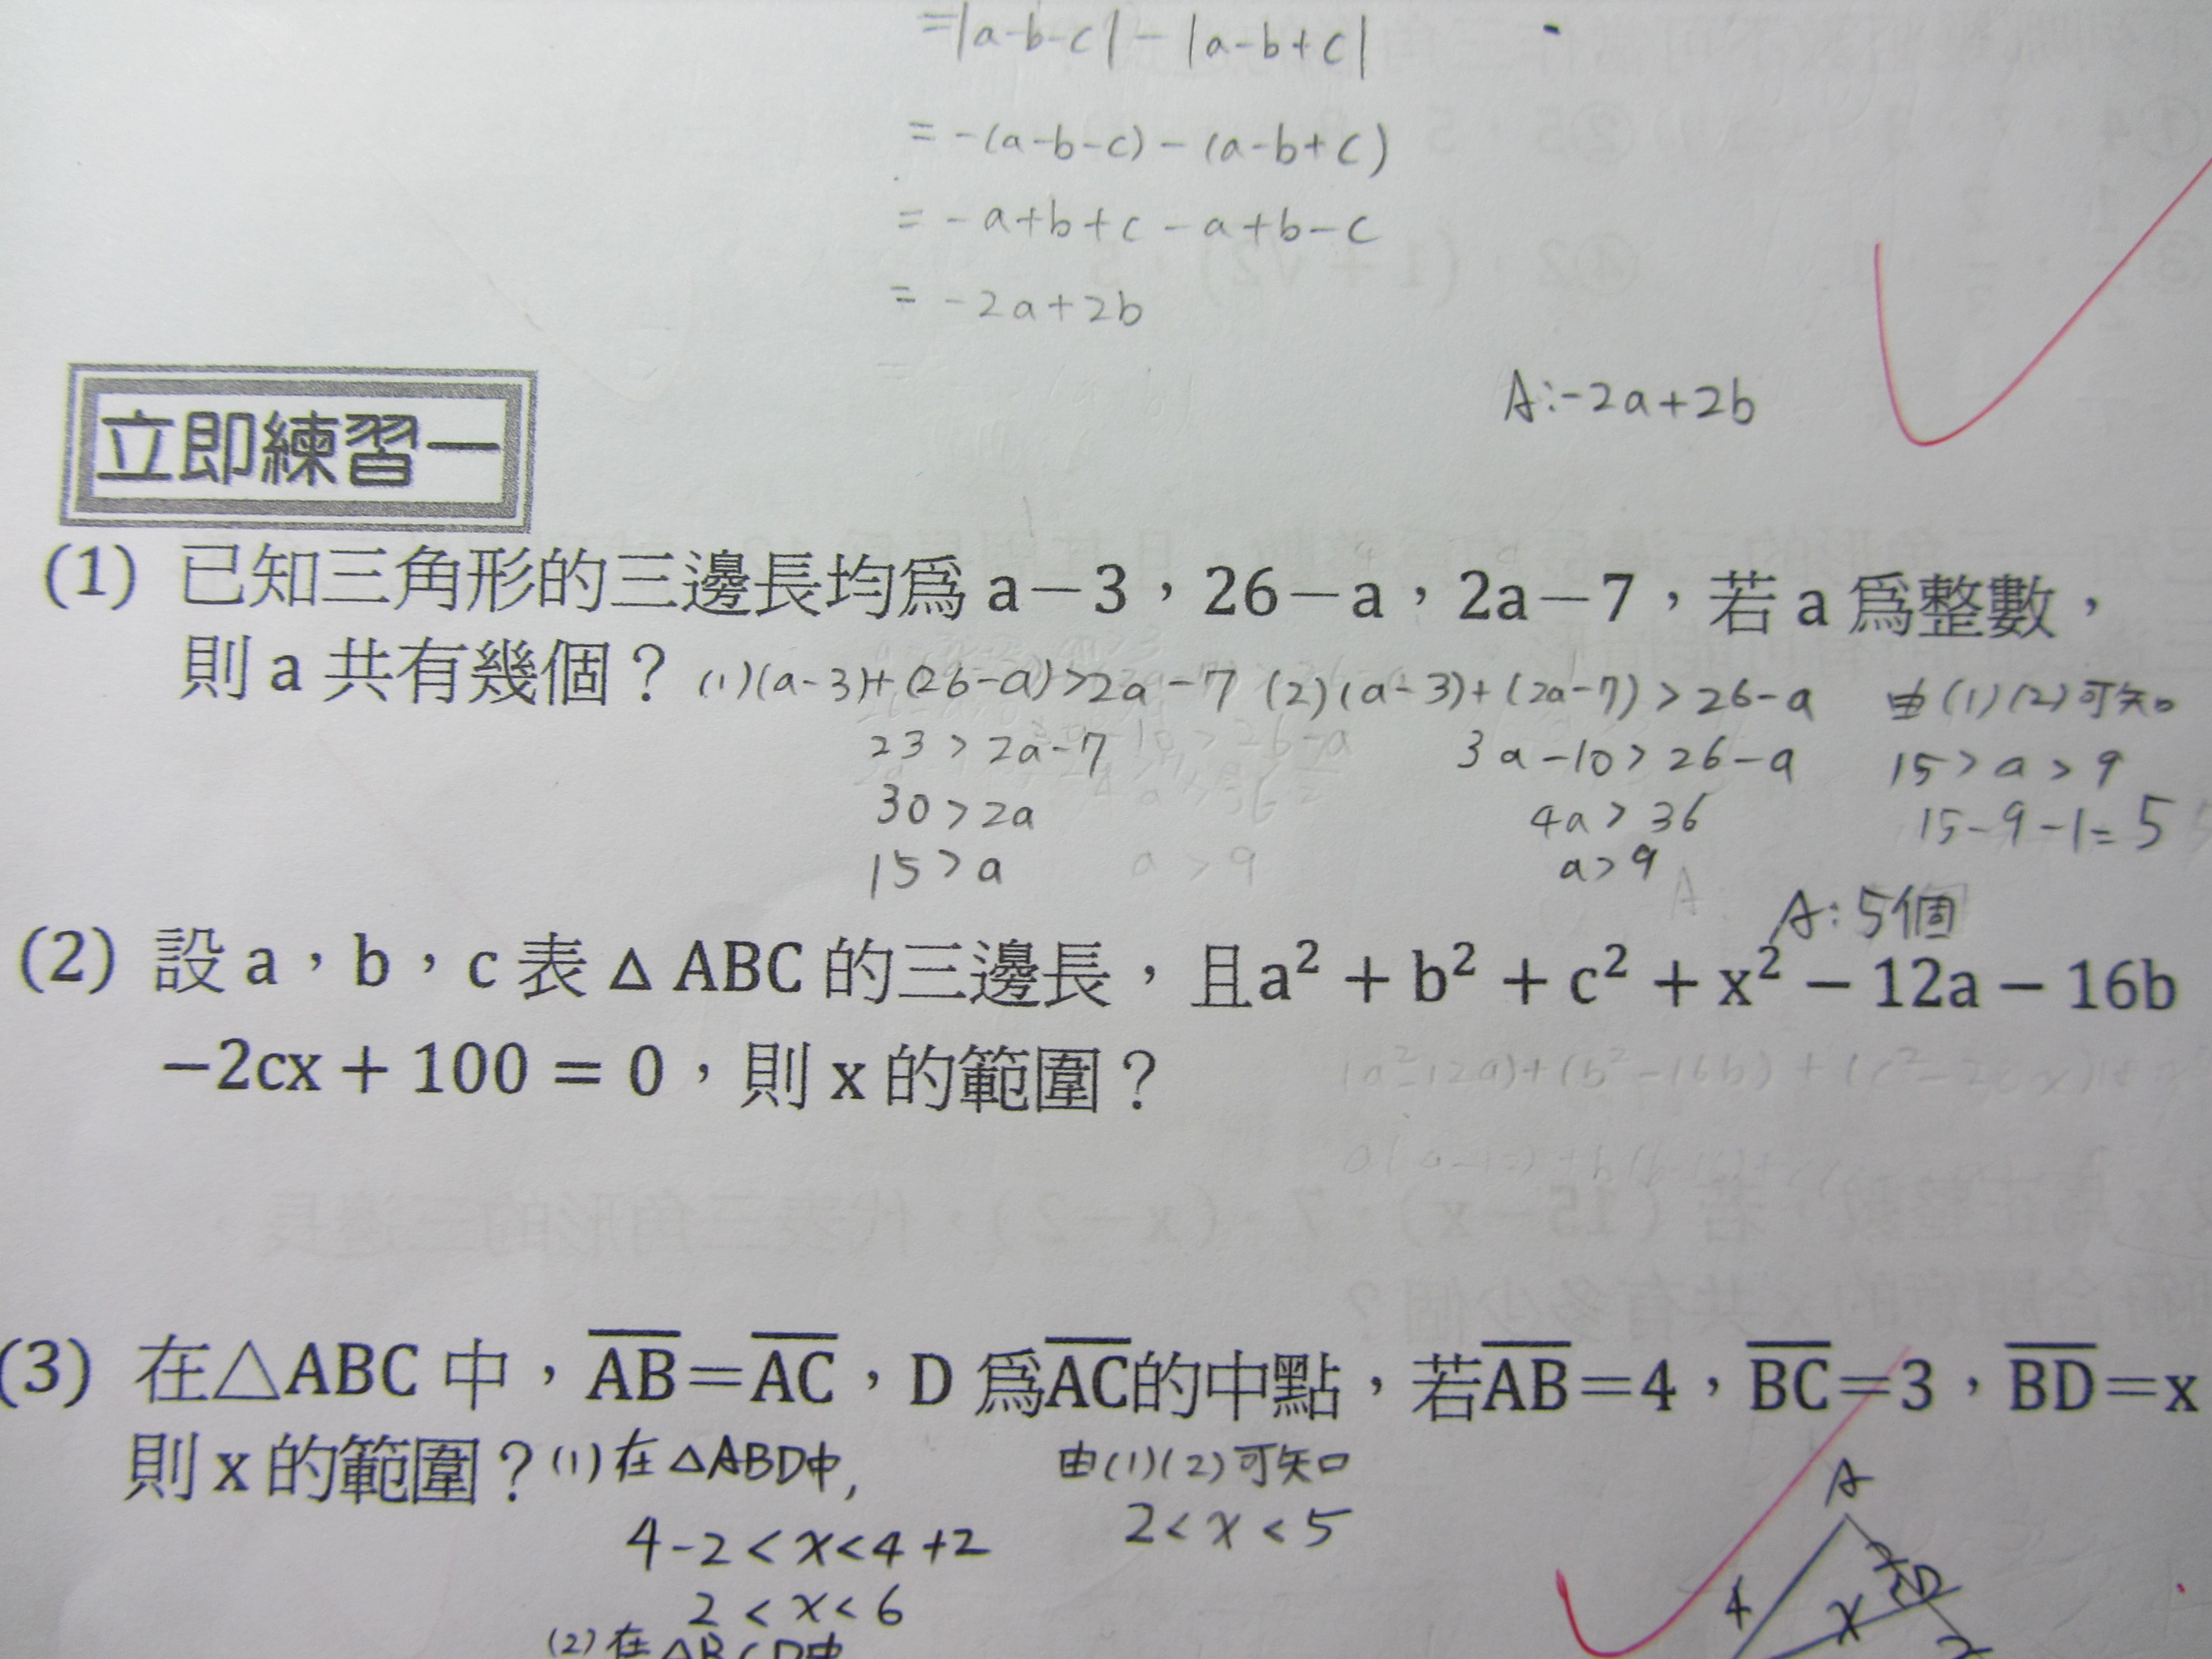 =|a-b-c| - |a-b+c|
= -(a-b-c) - (a-b+c)
= -a+b+c-a+b-c
= -2a+2b
A:-2a+2b
立即練習一
(1) 已知三角形的三邊長均爲 a－3，26－a，2a－7，若 a 爲整數，
則 a 共有幾個？ (1)(a-3)+(26-a)>2a-7 (2)(a-3)+(2a-7)>26-a 由(1)(2)可知
23>2a-7 3a-10>26-a 15>a>9
30>2a 4a>36 15-9-1=5
15>a a>9
A:5個
(2) 設 a，b，c 表 △ ABC 的三邊長，且a² + b² + c² + x² − 12a − 16b
−2cx + 100 = 0，則 x 的範圍？
(3) 在△ABC 中，A̅B̅＝A̅C̅，D 爲A̅C̅的中點，若A̅B̅＝4，B̅C̅＝3，B̅D̅＝x
則 x 的範圍？(1)在△ABD中, 由(1)(2)可知
4-2<x<4+2 2<x<5
2<x<6
(2)在△BCD中
A
4
x
D
2